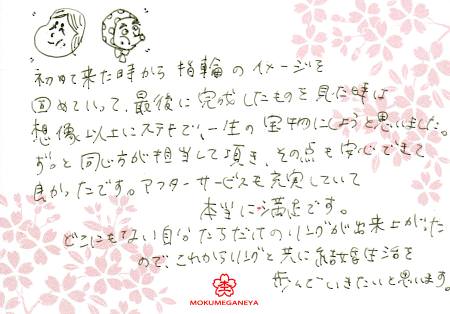 初めて来た時から指輪のイメージを
固めていって、最後に完成したものを見た時は
想像以上にステキで、一生の宝物にしようと思いました。
ずっと同じ方が担当して頂き、その点も安心できて
良かったです。アフターサービスも充実していて
本当に満足です。
どこにもない自分たちだけのリングが出来上がった
ので、これからリングと共に結婚生活を
歩んでいきたいと思います。
MOKUMEGANEYA